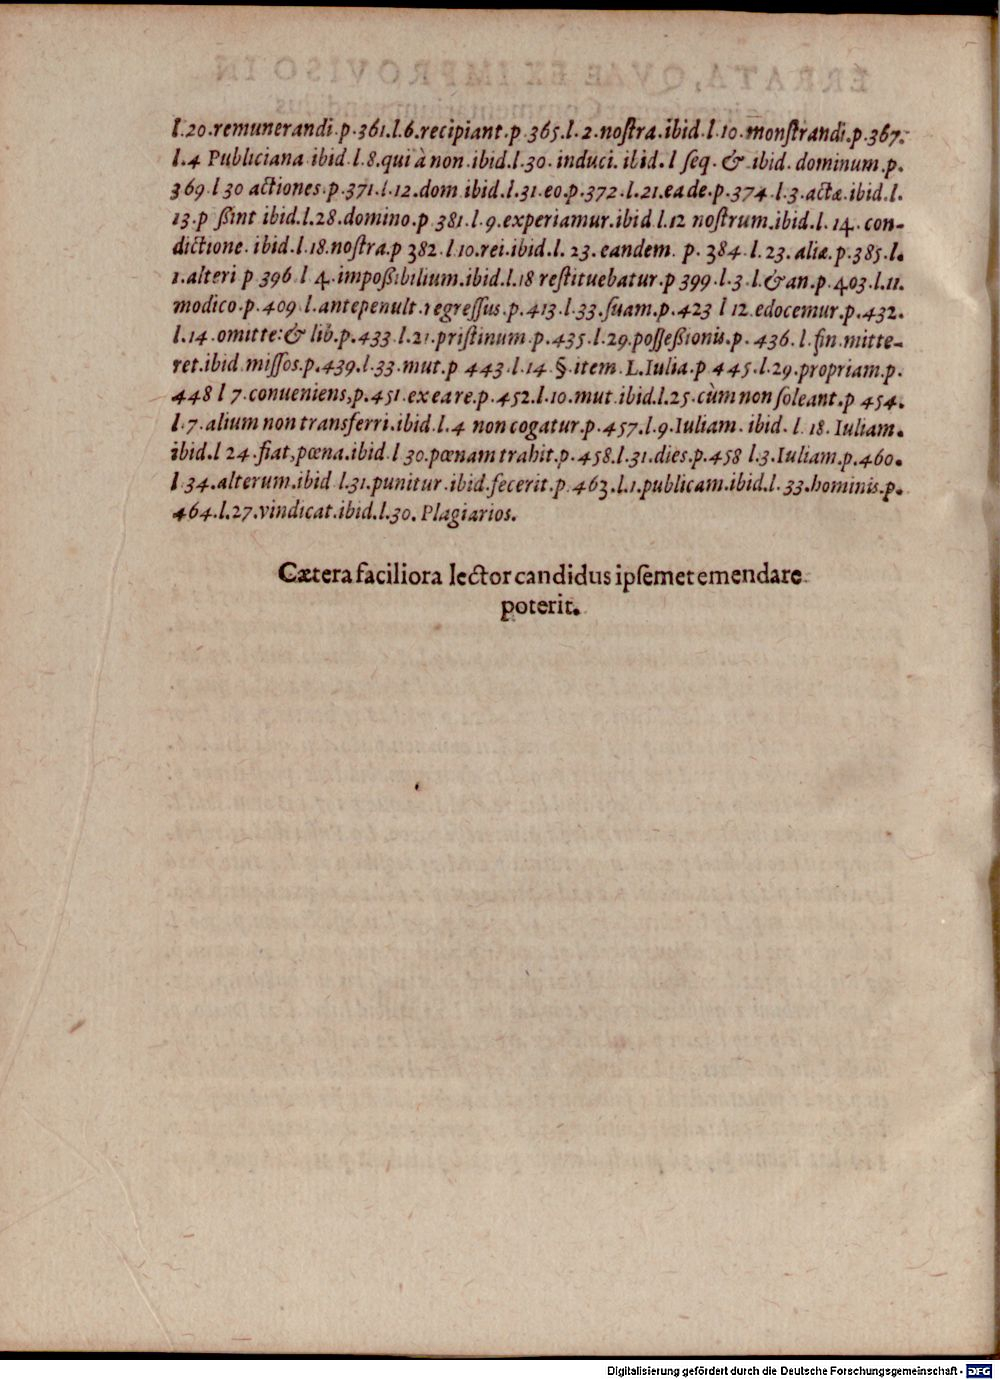 l.20.remunerandi.p.361.l.6.recipiant.p.365.l.2.noſtra.ibid.l.10.monſtrandi.p.367.
l.4 Publiciana ibid.l.8.qui à non.ibid.l.30.induci.ibid.l ſeq.& ibid.dominum.p.
369 l 30 actiones.p.371.l.12.dom ibid.l.31.eo.p.372.l.21.ea de.p.374 l.3.actæ.ibid.l.
13.p ßint ibid.l.28.domino.p 381.l.9.experiamur.ibid l.12 noſtrum.ibid.l.14.con-
dictione.ibid.l.18.noſtra.p 382.l 10.rei.ibid.l.23.eandem. p.384.l.23.aliæ.p.385.l.
1.alteri p 396 l 4.impoßibilium.ibid.l.18 reſtituebatur.p 399.l.3.l.& an.p.403.l.11.
modico.p.409 l.antepenult.regreſſus.p.413.l.33.ſuam.p.423 l 12 edocemur.p.432.
l.14.omitte:& lib.p.433 l.21.priſtinum.p.435.l.29.poſſeßionis.p.436.l.fin.mitte-
ret.ibid miſſos.p.439.l.33.mut.p 443.l.14 §.item L.Iulia.p 445.l.29.propriam.p.
448 l 7.conueniens,p.451 ex ea re.p.452.l.10.mut.ibid.l.25.cùm non ſoleant.p 454.
l.7.alium non transferri.ibid.l.4 non cogatur.p.457.l.9.Iuliam.ibid.l.18.Iuliam.
ibid.l 24.fiat,pœna.ibid.l 30.pœnam trahit.p.458.l.31.dies.p.458 l.3.Iuliam.p.460.
l 34.alterum.ibid l.31.punitur.ibid.fecerit.p.463.l.1.publicam.ibid.l.33.hominis.p.
464.l.27.vindicat.ibid.l.30.Plagiarios.
Cætera faciliora lector candidus ipſemet emendare
poterit.
Digitalisierung gefördert durch die Deutsche Forschungsgemeinschaft - DFG